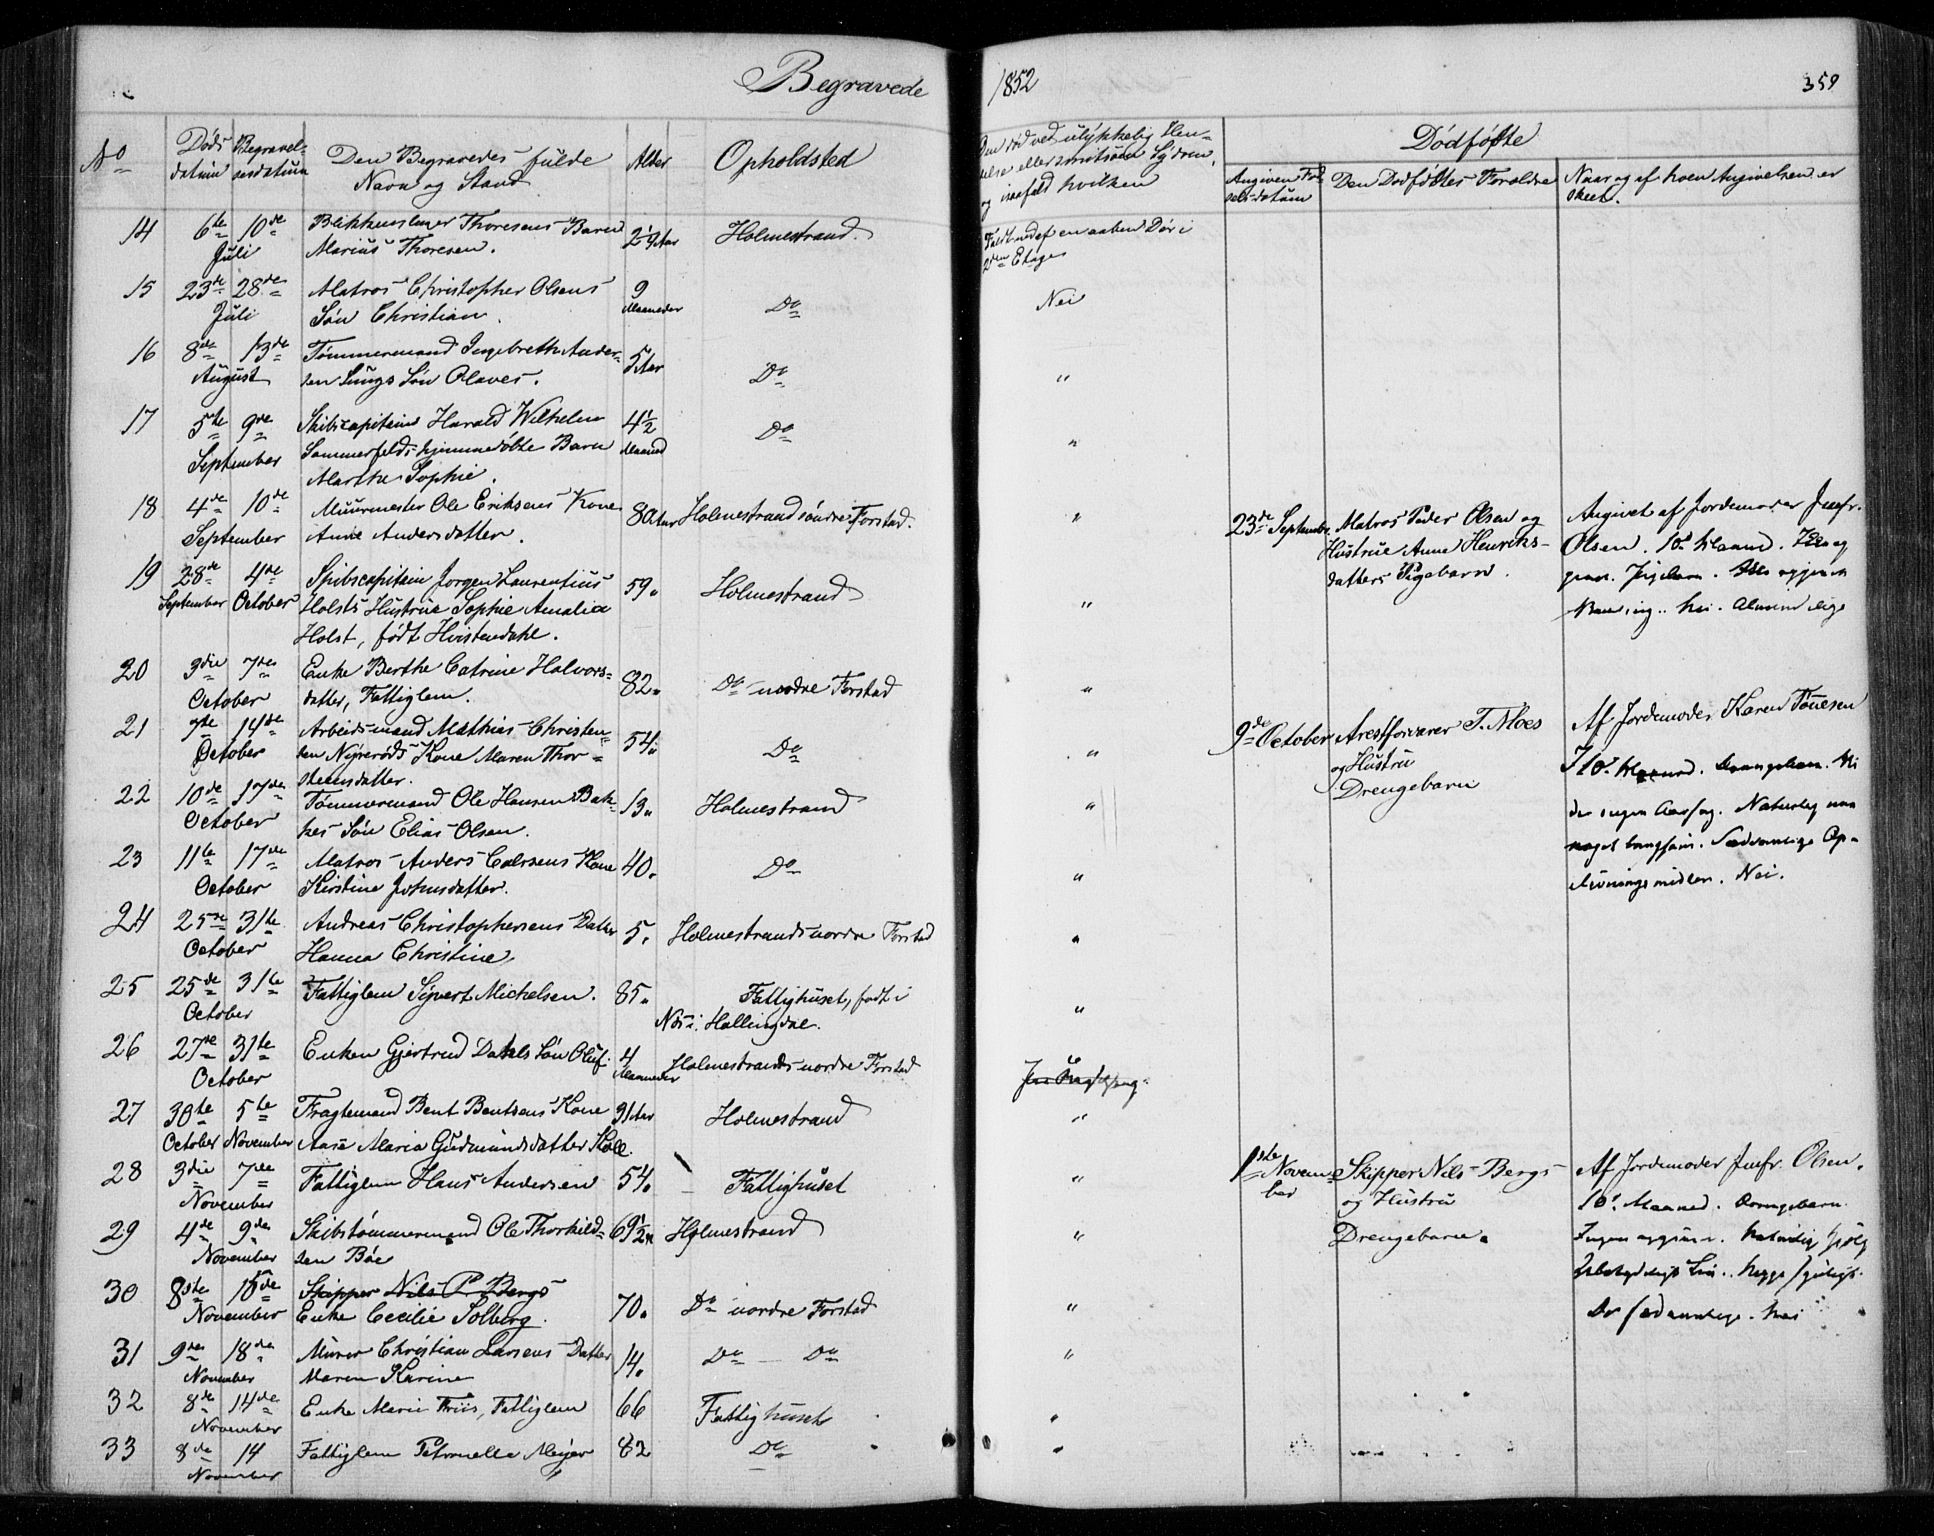 Begravede
1852
359
No
Døds datum
Begravelsesdatum
Den Begravedes fulde Navn og Stand
Alder
Opholdsted
Om død ved ulykkelig Hændelse eller smitsom Sygdom, og isaafald hvilken
Dødfødte
Angiven Fødselsdatum
Den Dødfødtes Forældre
Naar og af hvem Angivelsen er skeet.
14 6te 10de Blikkenslager Thoresens Barn 2½ Aar Holmestrand.
Juli Marius Thoresen.
Faldt ned af en aaben Dør i
2den Etage
15 23de 28de Matros Christopher Olsens 9 Do Nei
Juli Søn Christian. Maaneder
16 8de 13de Tømmermand Ingebreth Ander- 5 Aar Do "
August sen Lungs Søn Olaves.
17 5te 9de Skibscapitain Harald Wilhelm 4½ Do "
September Sommerfelds hjemmedøbte Barn Maaned
Marthe Sophie.
18 4de 10de Muurmester Ole Eriksens Kone 80 Aar Holmestrand søndre Forstad. "
September Anne Andersdatter.
23de September Matros Peder Olsen og
Hustrue Anne Henriks-
datters Pigebarn.
Angivet af Jordemoder Jmfr.
Olsen. 10d Maaned.
19 28de 4de Skibscapitain Jørgen Laurentius 59 Holmestrand "
September October Holsts Hustrue Sophie Amalia
Holst, født Hvistendahl.
Nei. Almindelige
20 3die 7de Enke Berthe Catrine Halvors- 82 Do nordre Forstad "
October datter, Fattiglem.
21 7de 14de Arbeidsmand Mathias Christen- 54 Do "
October sen Nyrerøds Kone Maren Thor-
steensdatter.
9de October Arestforvarer T. Moes
og Hustru
Drengebarn
Af Jordemoder Karen Tønesen
I 10d Maaned. Drengebarn.
22 10de 17de Tømmermand Ole Hansen Bak- 13 Holmestrand "
October kes Søn Elias Olsen.
der ingen Aarsag. Naturlig men
noget langsom. Sædvanlige Op-
livningsmidler. Nei.
23 11te 17de Matros Anders Carsens Kone 40 Do "
October Kirstine Johnsdatter.
24 25de 31te Andreas Christophersens Datter 5 Holmestrands nordre Forstad "
October Hanna Christine
25 25de 31te Fattiglem Sivert Michelsen. 85 Fattighuset, født i "
October Næs i Hallingdal.
26 27de 31te Enken Gjertrud Dahls Søn Oluf. 4 Holmestrands nordre Forstad
October Maaneder
27 30te 5te Fragtemand Bent Bentsens Kone 31 Aar Holmestrand "
October November Aase Maria Gudmundsdatter Koll.
28 3die 7de Fattiglem Hans Andersen 54 Fattighuset "
November
1ste Novem-
ber
Skipper Nils Bergs
og Hustru
Drengebarn.
Af Jordemoder Jmfr. Olsen.
10d Maaned. Drengebarn
29 4de 9de Skibstømmermand Ole Thorkild- 69½ Holmestrand "
November sen Bøe
30 8de 15de Skipper Nils P. Bergs 70 Do nordre Forstad "
November Enke Cecilie Solberg.
De sædvanlige. Nei
31 9de 18de Murer Christian Larsens Datter 14 Do Do "
November Maren Karine
32 8de 14de Enke Marie Friis, Fattiglem 66 Fattighuset "
November
33 8de 14 Fattiglem Petronelle Meyer 82 Do "
November